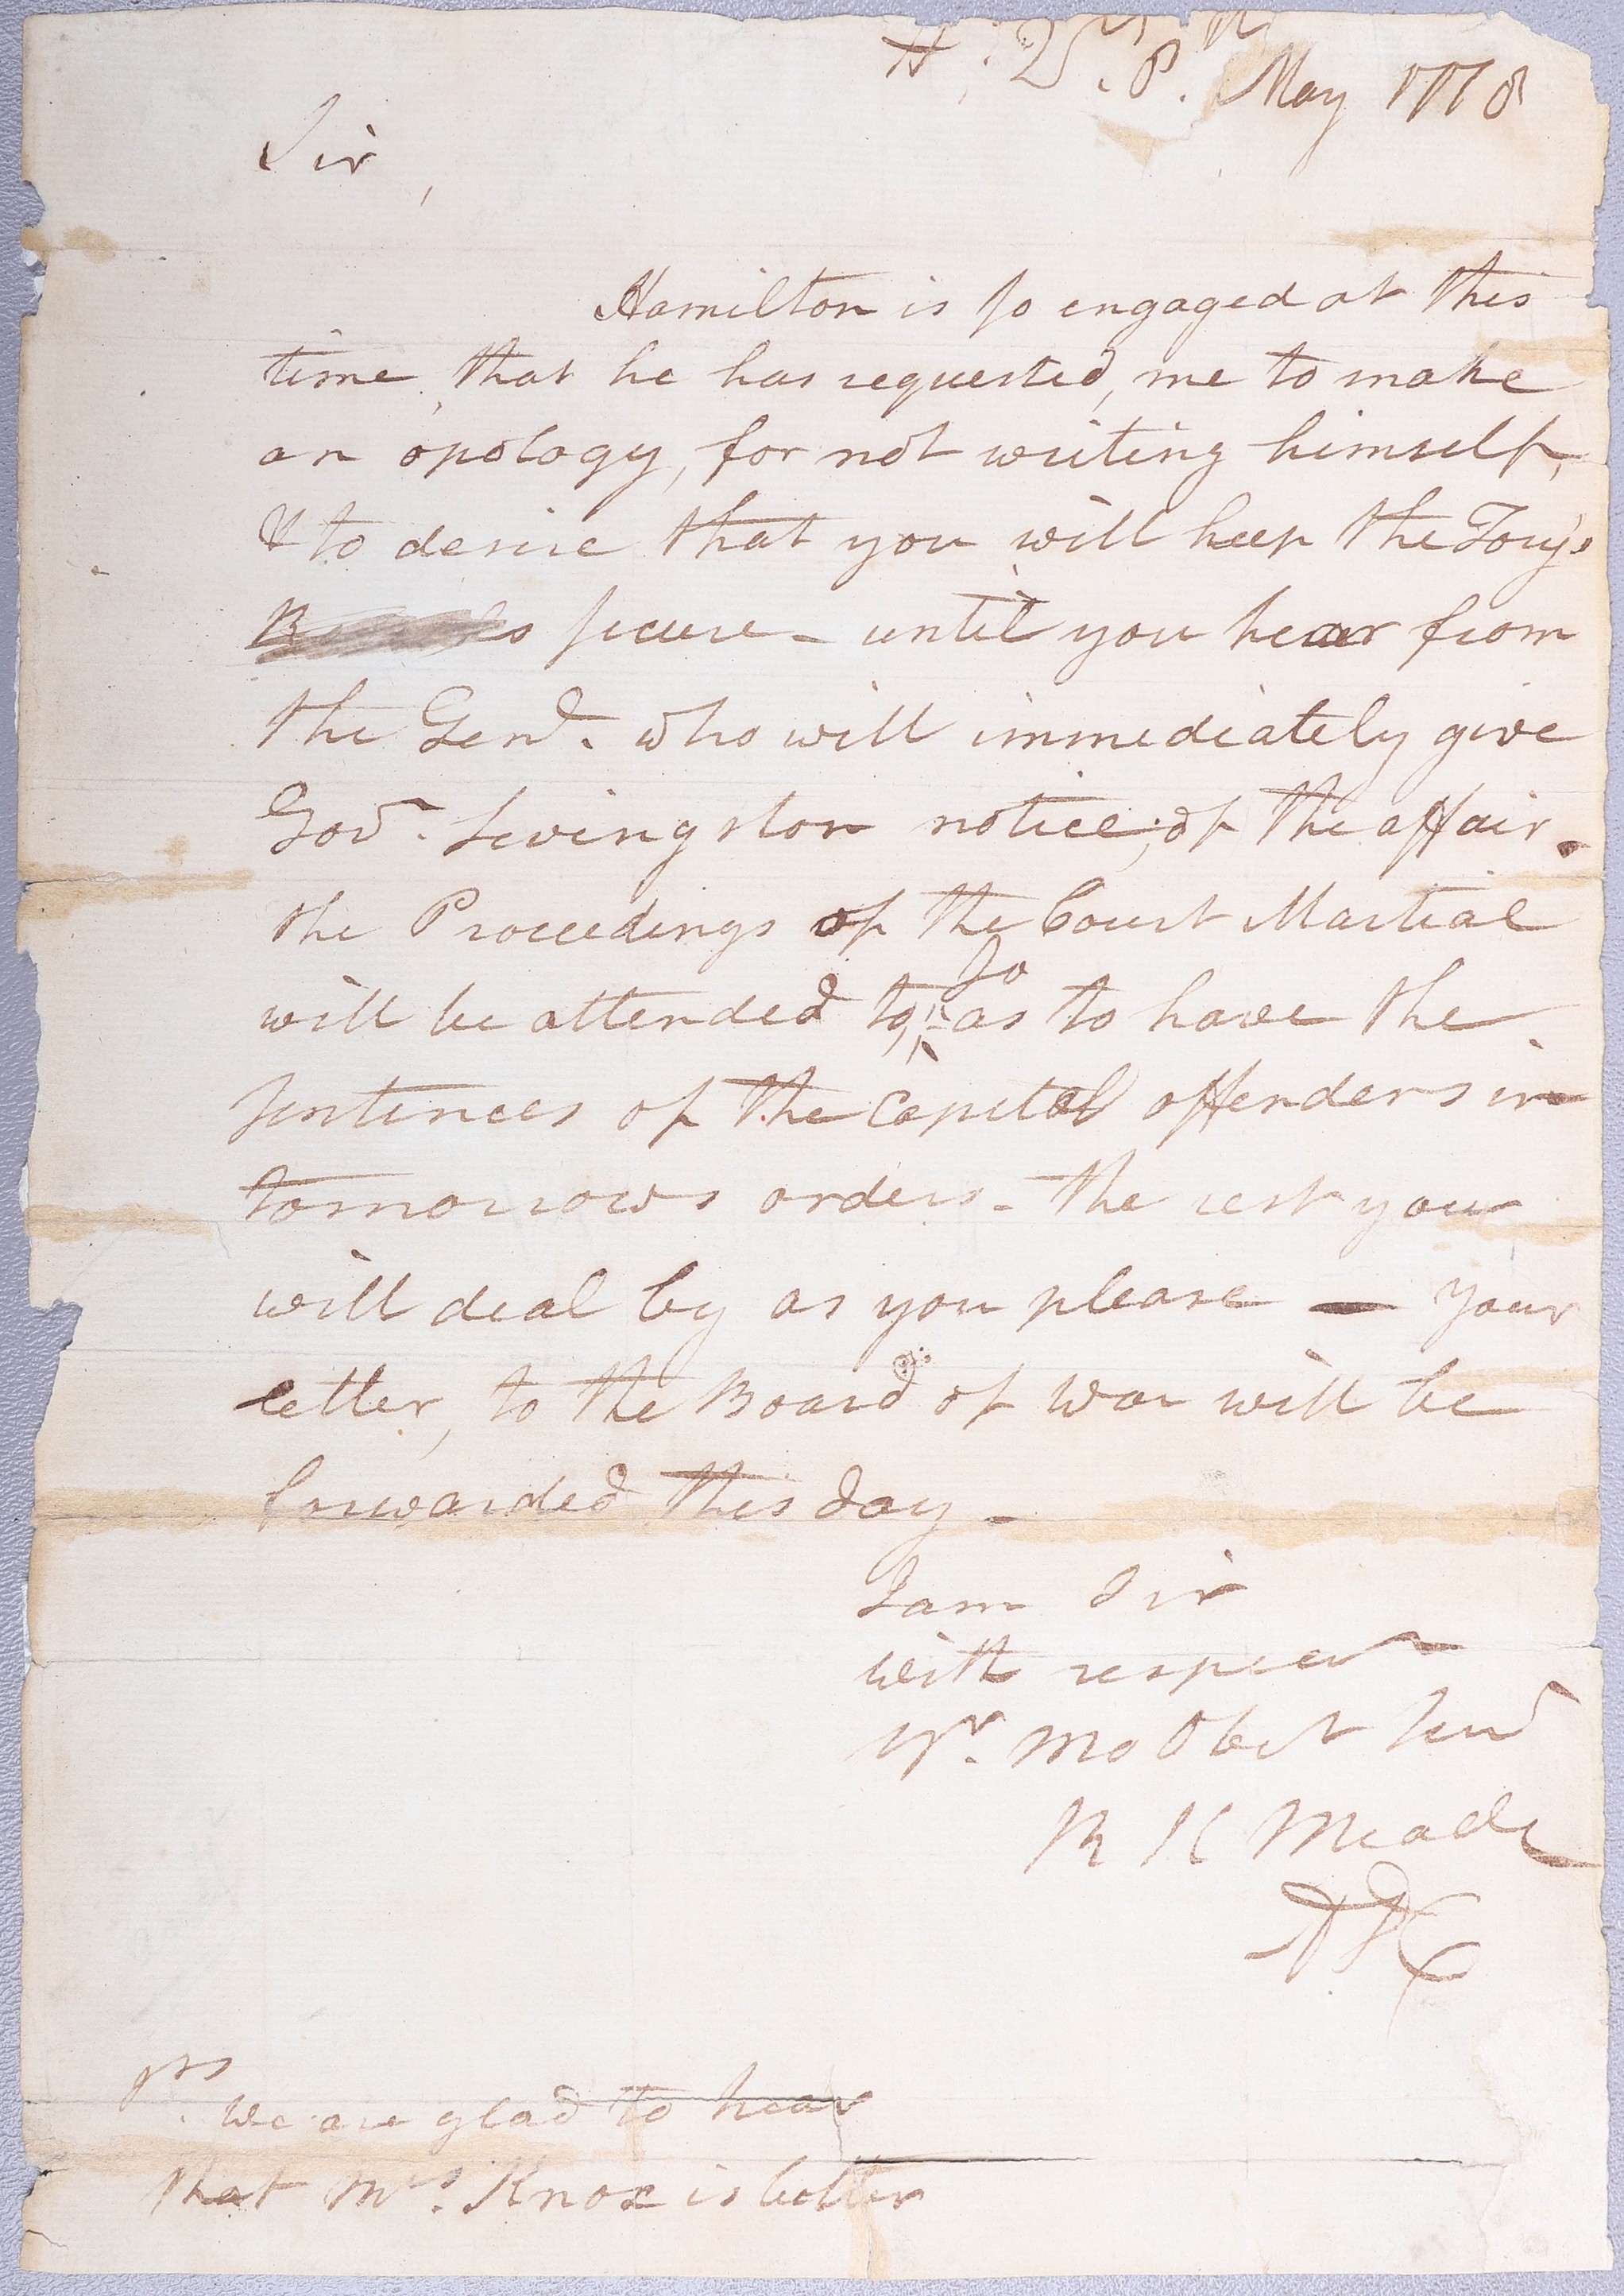 H: Qrs. May 1778
Sir,
Hamilton is so engaged at this
time, that he has requested, me to make
an apology, for not writing himself,
& to desire that you will keep the Tory's
secure - until you hear from
the Genl. who will immediately give
Govr. Livingston notice, of the affair.
the Proceedings of the Court Martial
will be attended to, so as to have the
sentences of the Capital offenders in
tomorrows orders - the rest you
will deal by as you please — your
letter, to the Board of War will be
forwarded this day -
I am Sir
with respect
Yr. Mo Obet Servt
R K Meade
ADC
Ps. we are glad to hear
that Mrs. Knox is better